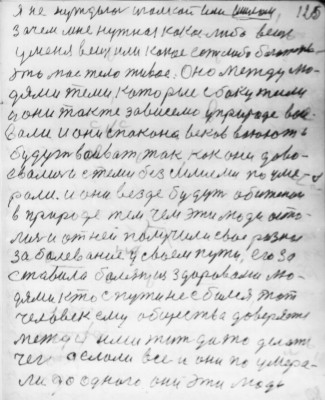 я не нуждаюсь иголкой или шилом, 125
зачем мне нужная кака либо вещь
у меня вещи или какое сот либо богатство
это мое тело живое. Оно между лю-
дями теми, которые с боку жили
и они также зависемо в природе вое-
вали и они споконa веков воюют ь
будут воеват, так как они дово-
евались с теми без силиями по уме-
рали. и они везде будут обижены
в природе тем чем эти люди
и от ней получили свои разны
заболевание у своем пути, его за
ставила болящи здоровами лю-
дями кто с пути не сбился тот
человек ему общества доверяет
между ними тит дато делат
чег делали все и они по умера-
ли до одного они эти люди